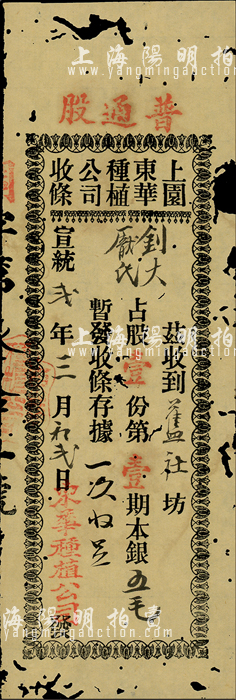 上海陽明拍賣
www.yangmingauction.com
普通股
上園
東華
種植
公司
收條
茲收到舊社坊
劉大
占股壹份第壹期本銀五毛
暫發收條存據
一次收足
宣統弍年三月初弍日
東華種植公司發
上海陽明拍賣
www.yangmingauction.com
上海陽明拍賣
www.yangmingauction.com